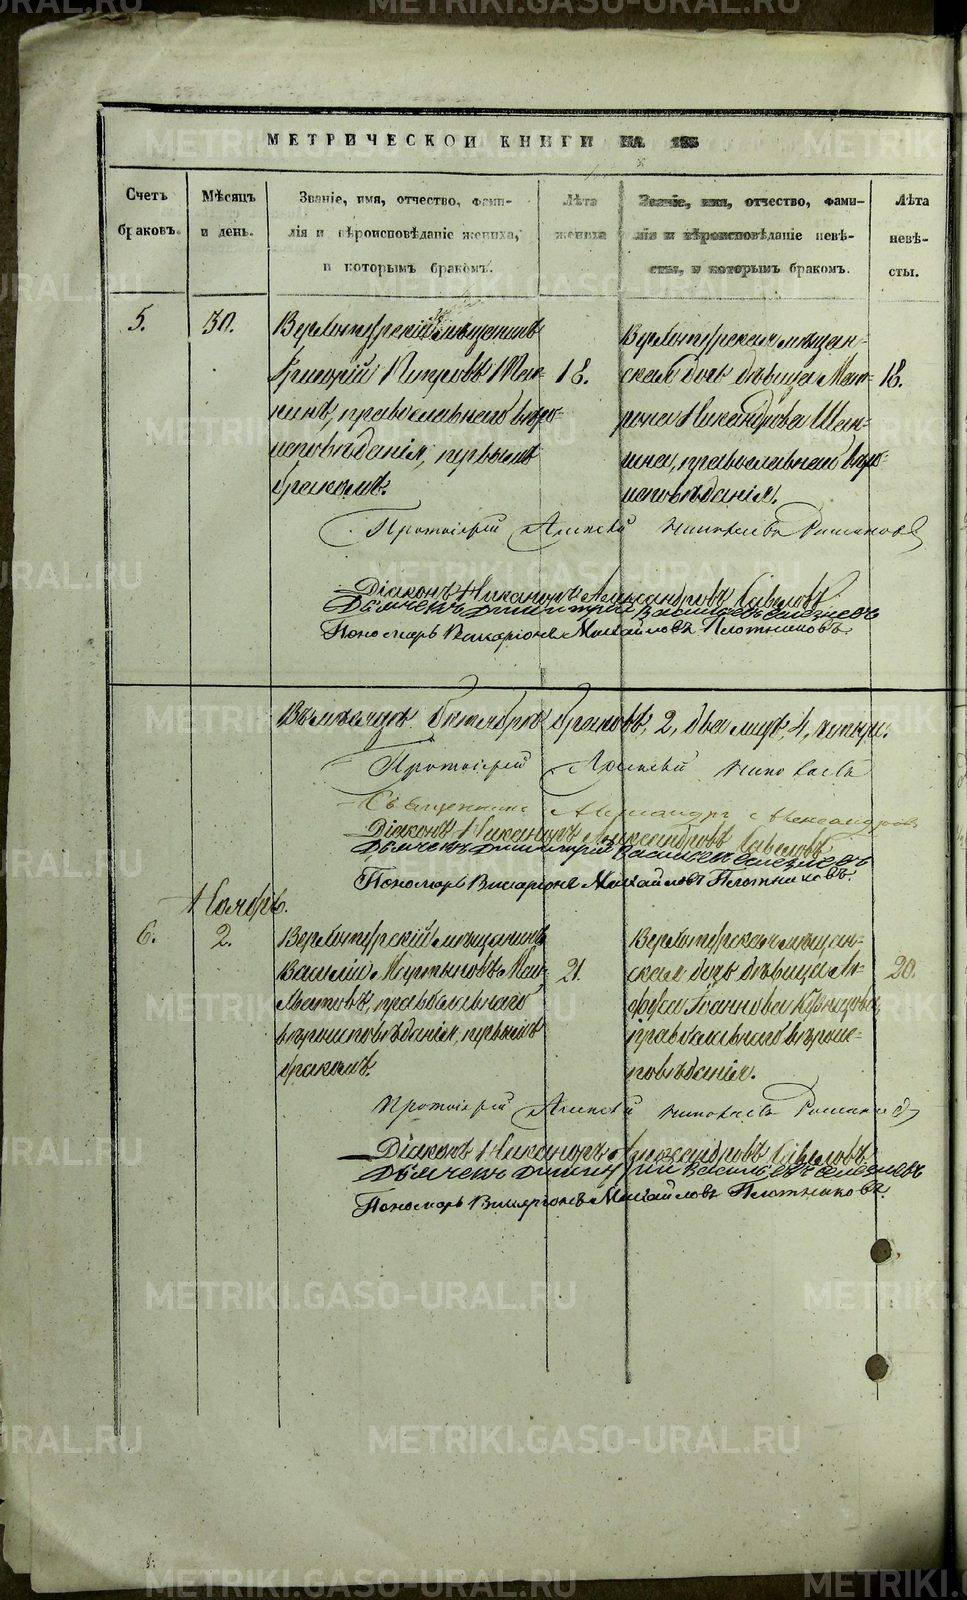 МЕТРИЧЕСКОЙ КНИГИ НА 185
Счетъ браковъ.
Мѣсяцъ и день.
Званіе, имя, отчество, фами-
лія и вѣроисповѣданіе жениха,
и которымъ бракомъ.
Лѣта
жениха
Званіе, имя, отчество, фами-
лія и вѣроисповѣданіе невѣ-
сты, и которымъ бракомъ.
Лѣта
невѣ-
сты.
5.
30.
Верхотурскій мѣщанинъ
Григорій Петровъ
православнаго вѣро-
исповѣданія, первымъ
бракомъ.
18.
Верхотурская мѣщан-
ская дочь дѣвица Мат-
рона Никандрова Шан-
гина, православнаго вѣро-
исповѣданія.
18.
Протоіерей Алексѣй Николаевъ
Діаконъ Никаноръ Александровъ
Дьячекъ Димитрій Васильевъ Селезневъ
Пономарь Виссаріонъ Михайловъ Плотниковъ.
Въ мѣсяцѣ Октябрѣ браковъ, 2, два лицъ, 4, четыре.
Протоіерей Алексѣй Николаевъ
Священникъ Александръ Александровъ
Діаконъ Никаноръ Александровъ
Дьячекъ Димитрій Васильевъ Селезневъ
Пономарь Виссаріонъ Михайловъ Плотниковъ.
Ноябрь.
6.
2.
Верхотурскій мѣщанинъ
Василій Мартыновъ
православнаго
вѣроисповѣданія, первымъ
бракомъ.
21.
Верхотурская мѣщан-
ская дочь дѣвица
Іоаннова Кузнецова,
православнаго вѣроис-
повѣданія.
20.
Протоіерей Алексѣй Николаевъ
Діаконъ Никаноръ Александровъ
Дьячекъ Димитрій Васильевъ Селезневъ
Пономарь Виссаріонъ Михайловъ Плотниковъ.
METRIKI.GASO-URAL.RU